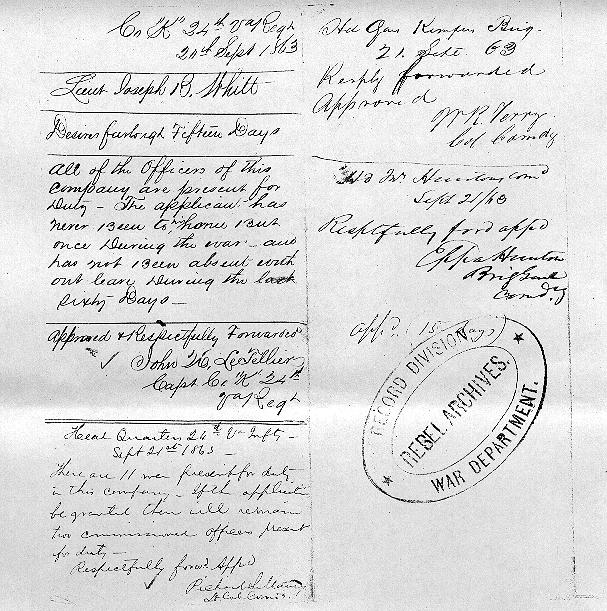 Co "K" 24th Va Regt
20th Sept 1863
Lieut Joseph B. Whitt
Desires furlough Fifteen Days
All of the Officers of this
Company are present for
Duty - The applican has
never Been to his home But
once During the war - and
has not Been absent with
out leave During the last
sixty Days -
Approved & Respectfully Forwarded
John W. LeTellier
Capt Co "K" 24th
Va Regt
Head Quarters 24th Va Infty -
Sept 21st 1863 -
There are 11 men present for duty
in this company - If the applicati
be granted there will remain
two commissioned officers present
for duty -
Respectfully forwd Appd
Lt Col Comdg
Hd Qrs Kemper Brig.
21 Sept 63
Resply forwarded
Approved
W R Terry
Col Comdg
Hd Qrs Huntons Comd
Sept 21/63
Respectfully ford appd
Eppa Hunton
Brig Genl
Comdg
Appd. (15 days)
RECORD DIVISION
REBEL ARCHIVES.
WAR DEPARTMENT.